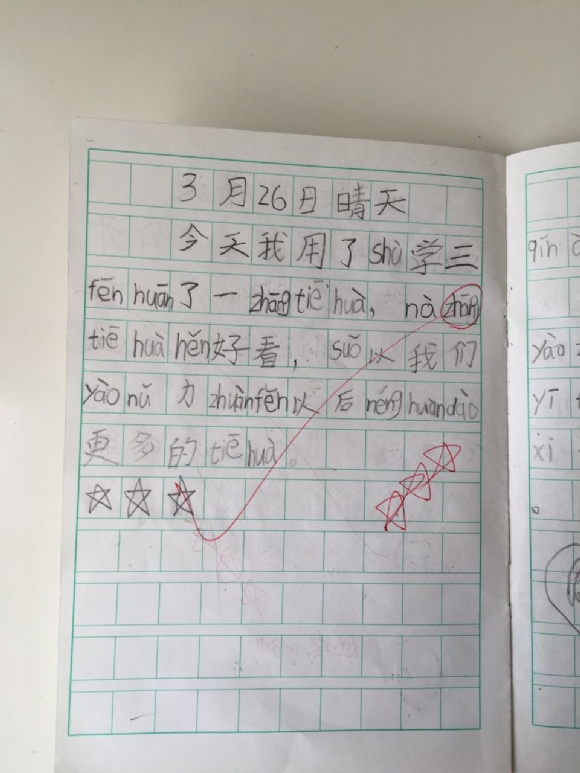 3月26日晴天
今天我用了shù学三
fēn huān了一zhāng tiē huà，nà zhāng
tiē huà hěn好看，suǒ以我们
yào nǔ力zhuànfēn以后néng huàndào
更多的tiē huà。
qīn
yào
yī
xǐ
。